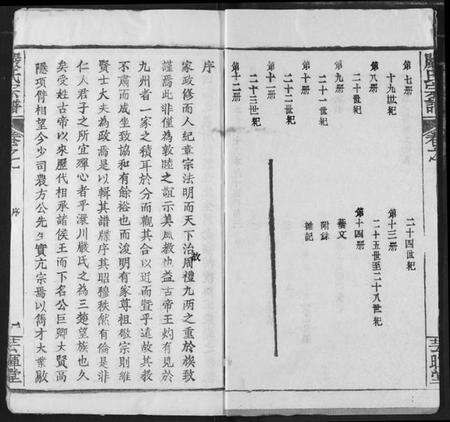 嚴氏宗譜
卷之一
第七册
十九世紀
第八册
二十世紀
第九册
二十一世紀
第十册
二十二世紀
第十一册
二十三世紀
第十二册
二十四世紀
第十三册
二十五世至二十八世紀
第十四册
藝文
附錄
雜記
嚴氏宗譜
卷之一
序
一
序
家政修而人紀章宗法明而天下治周禮九兩之重於族致
謹焉此非僅為敦睦之誼示美風教也益古帝王灼有見於
九州者一家之積耳於分而觀其合以近而暨乎遠故其教
不肅而成生致協和有餘裕也而浚明有家尊祖敬宗則維
賢士大夫為政焉是以輯其譜牒序其昭穆秩然有倫是非
仁人君子之所宜殫心者乎瀼川嚴氏之為三楚望族也久
矣受姓古帝以來歷代相承諸侯王而下名公巨卿大賢高
隱項背相望今少司農方公先生實亢宗焉以儁才大業敭
故